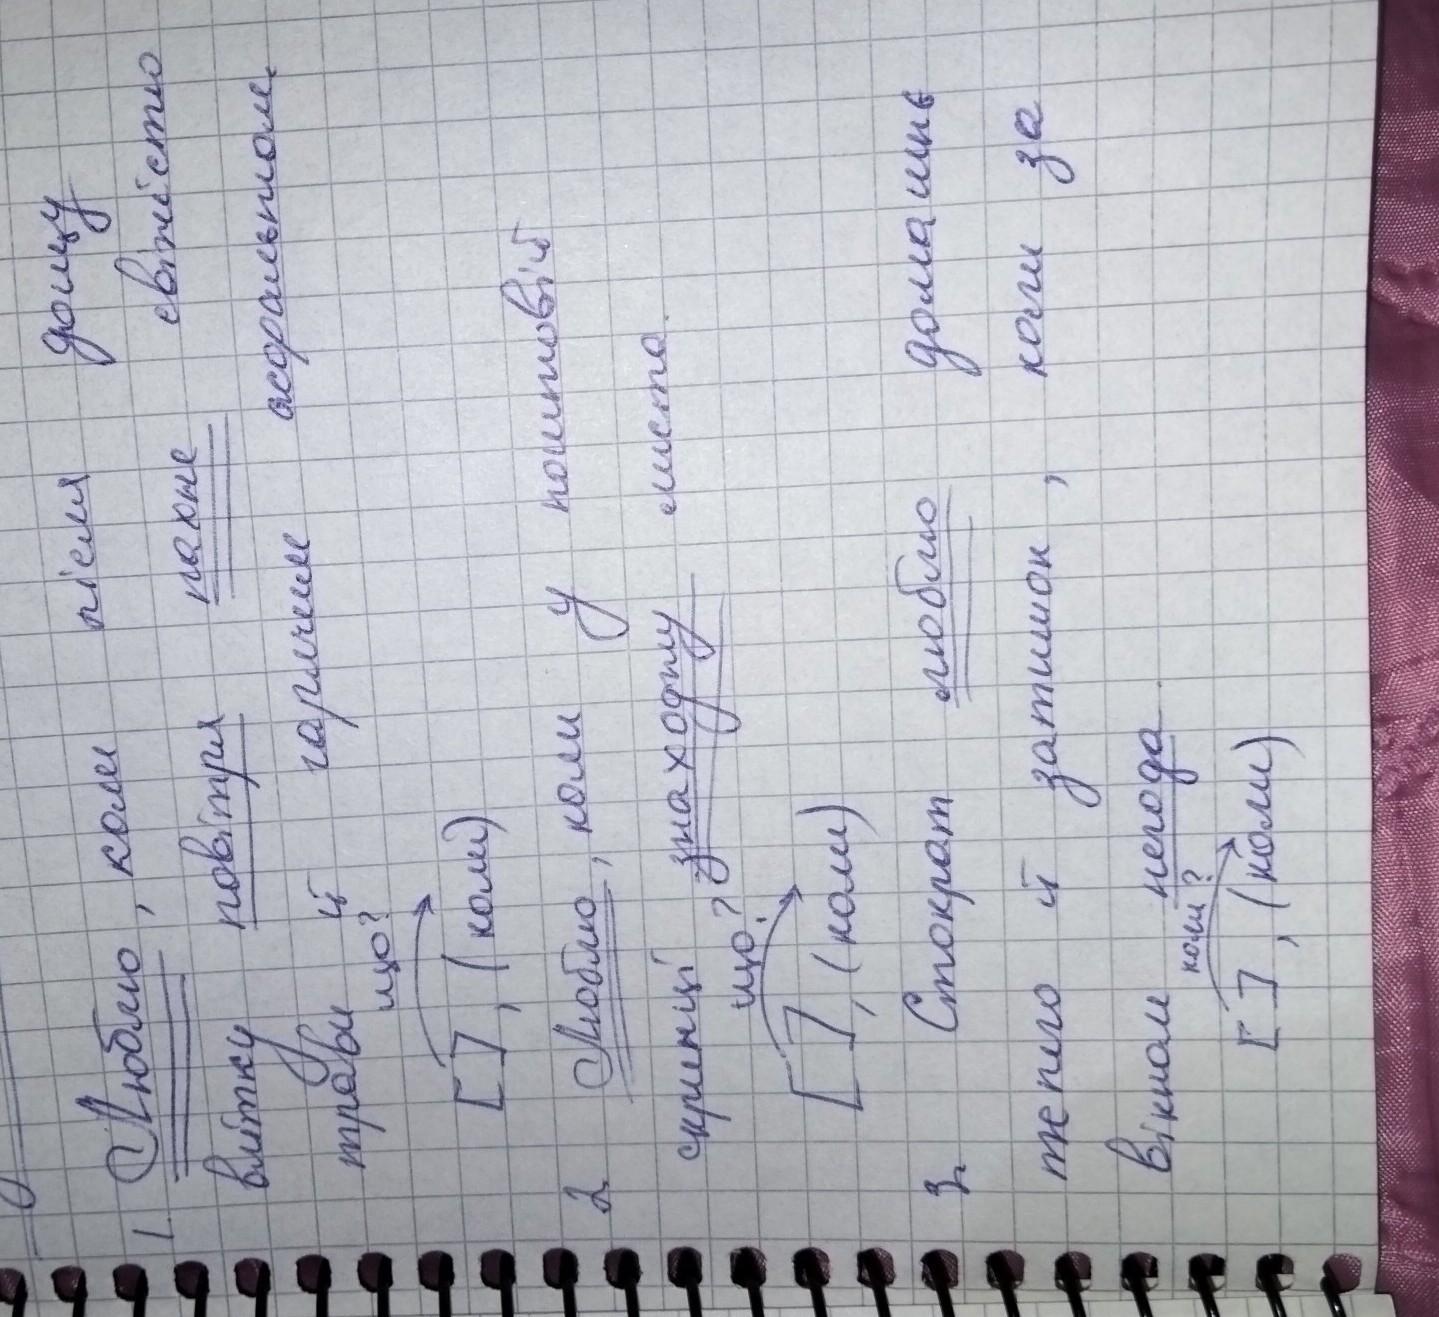 1. Люблю, коли після дощу
влітку повітря пахне свіжістю
трави й гарячим асфальтом.
що?
[ ], (коли)
2 Люблю, коли у поштовій
скриньці знаходжу листа.
що?
[ ], (коли)
3. Стократ люблю домашнє
тепло й затишок, коли за
вікном негода.
коли?
[ ], (коли)